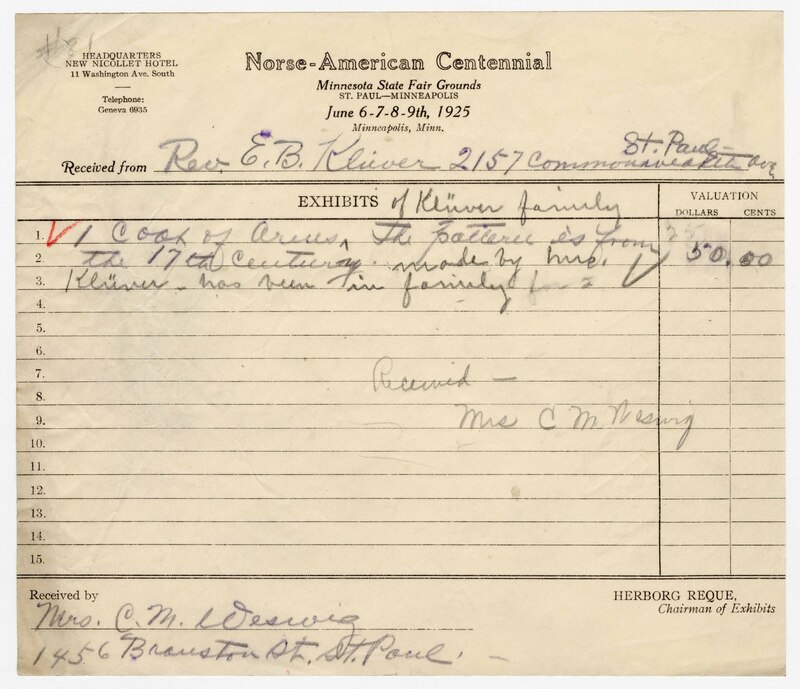 #81
HEADQUARTERS
NEW NICOLLET HOTEL
11 Washington Ave. South
Telephone:
Geneva 6935
Norse-American Centennial
Minnesota State Fair Grounds
ST. PAUL—MINNEAPOLIS
June 6-7-8-9th, 1925
Minneapolis, Minn.
St. Paul
Received from Rev. E. B. Klüver 2157 Commonwealth Ave
EXHIBITS of Klüver family
VALUATION
DOLLARS CENTS
1. 1 Coat of Arms, The pattern is from
2. the 17th Century. made by Mrs. 50.00
3. Klüver - has been in family for
4.
5.
6.
7. Received —
8.
9. Mrs C M Weswig
10.
11.
12.
13.
14.
15.
Received by
Mrs. C. M. Weswig
1456 Branston St. St. Paul. —
HERBORG REQUE,
Chairman of Exhibits